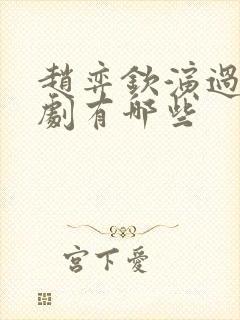 趙弈欽演過
劇有哪些
宮下愛